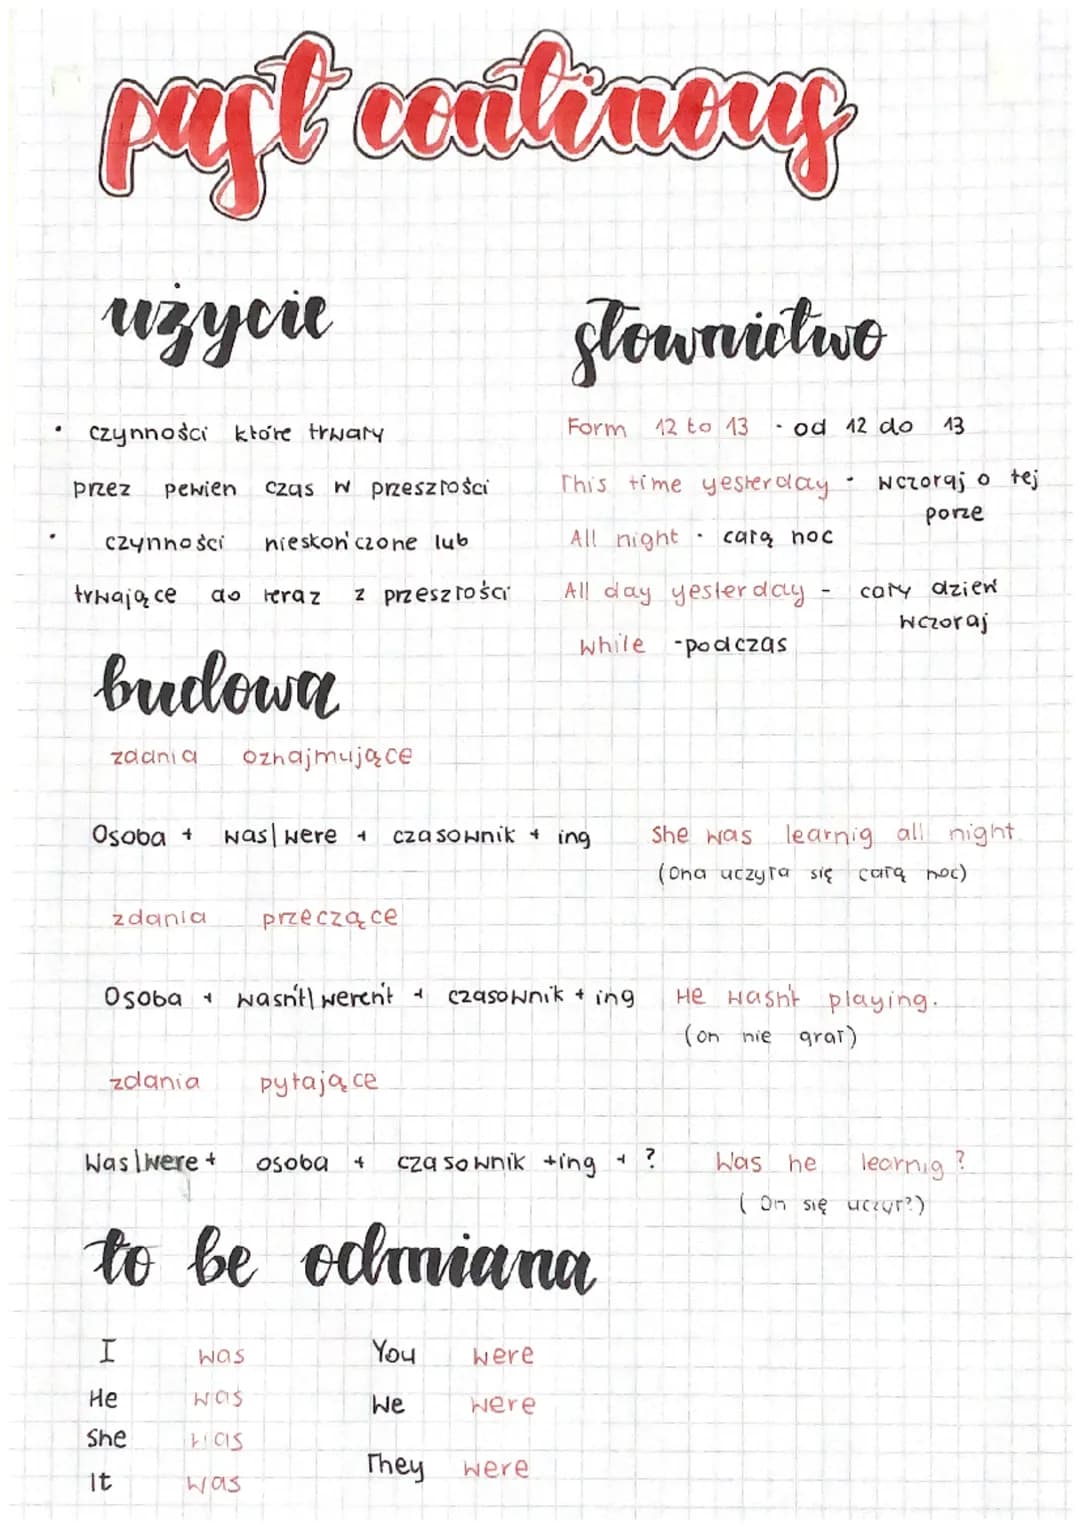 past continous
użycie
• czynności które trwały
przez pewien czas w przeszłości
• czynności nieskończone lub
trwające do teraz z przeszłości
słownictwo
Form 12 to 13 - od 12 do 13
This time yesterday - wczoraj o tej
porze
All night - całą noc
All day yesterday - cały dzień
wczoraj
while - podczas
budowa
zdania oznajmujące
Osoba + was/were + czasownik + ing She was learnig all night.
(Ona uczyła się całą noc)
zdania przeczące
Osoba + wasn't\weren't + czasownik + ing He wasn't playing.
(on nie grał)
zdania pytające
Was\were + osoba + czasownik +ing + ? Was he learnig?
(On się uczył?)
to be odmiana
I was You were
He was We were
She was
They were
It was